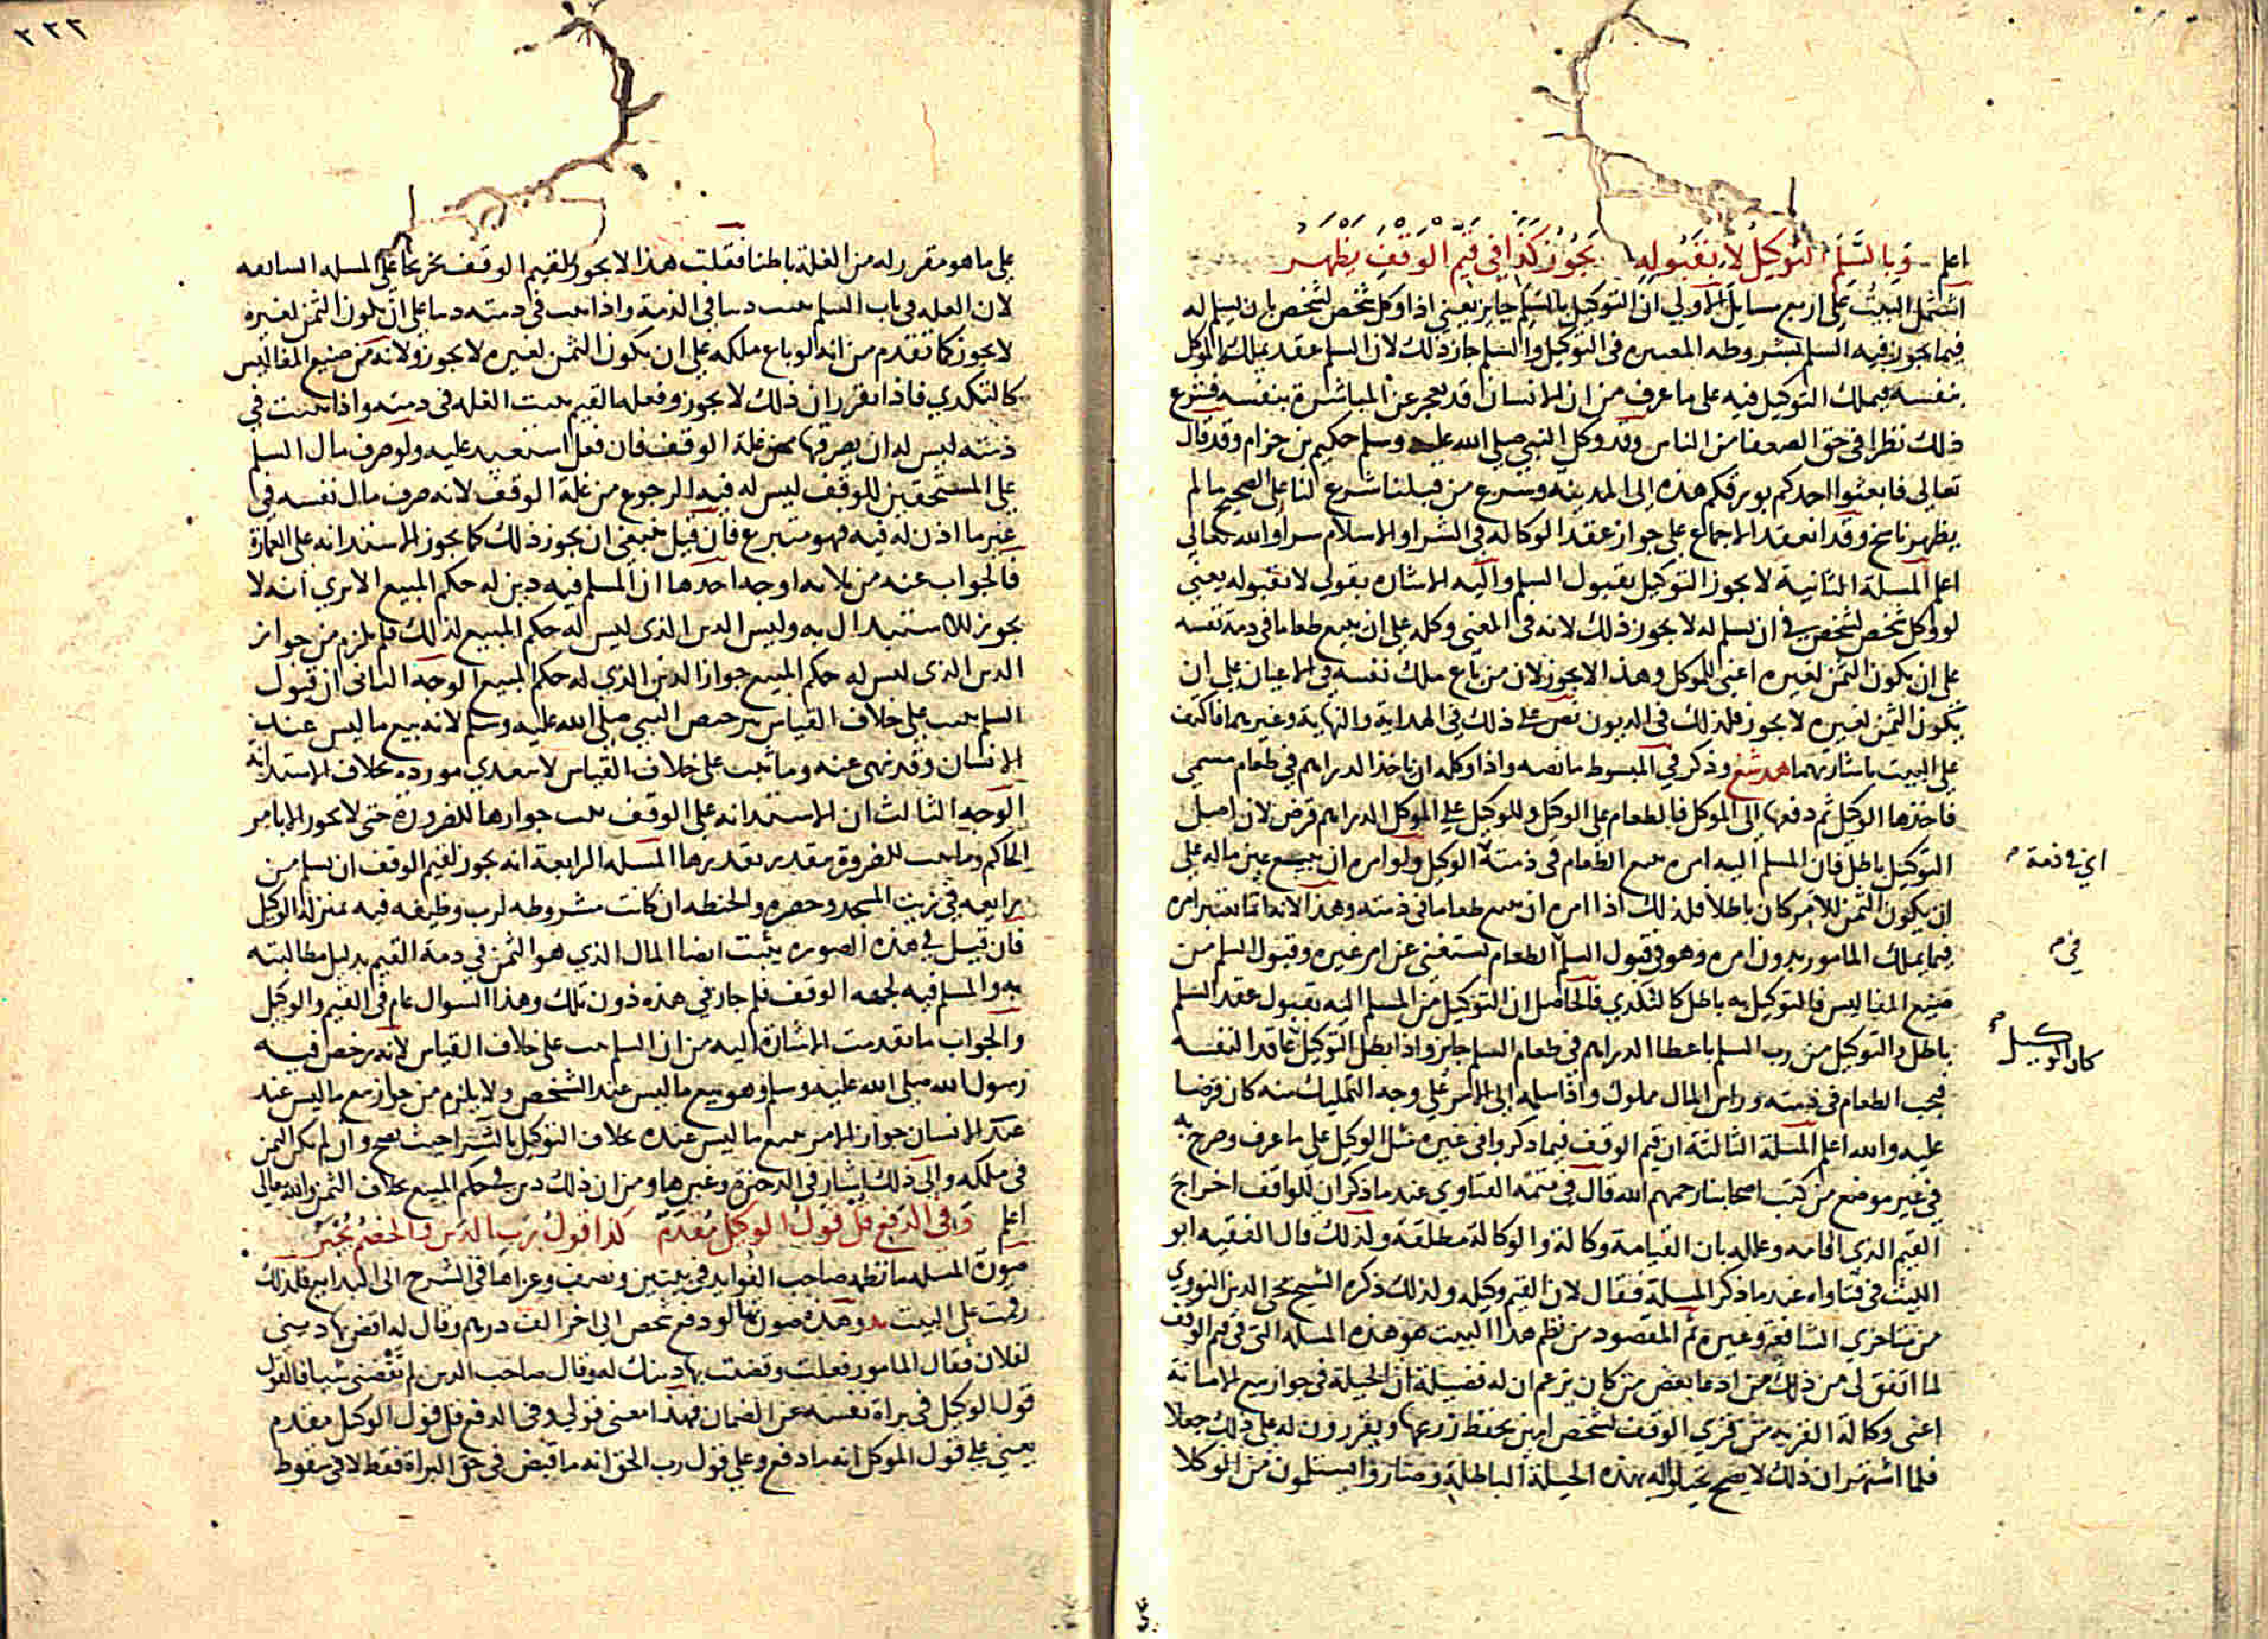 اعلم وبالسلم التوكيل لا بقبوله يجوز كذا في قيم الوقف يظهر
اشتمل البيت على اربع مسايل الاولى ان التوكيل بالسلم جايز يعني اذا وكل شخص لشخص بان يسلم له
فيما يجوز فيه السلم بشروطه المعتبره في التوكيل والسلم جاز ذلك لان السلم عقد يملكه الموكل
بنفسه فيملك التوكيل فيه على ما عرف من ان الانسان قد يعجز عن المباشرة بنفسه فشرع
ذلك نظرا في حق الضعفا من الناس وقد وكل النبي صلى الله عليه وسلم حكيم بن حزام وقد قال
تعالى فابعثوا احدكم بورقكم هذه الى المدينه وشرع من قبلنا شرع لنا على الصحيح ما لم
يظهر ناسخ وقد انعقد الاجماع على جواز عقد الوكالة في الشرا والاسلام شرا والله تعالى
اعلم المسلة الثانية لا يجوز التوكيل بقبول السلم واليه الاشاره بقولي لا بقبوله يعني
لو وكل شخص لشخص في ان يسلم له لا يجوز ذلك لانه في المعنى وكله على ان يبيع طعاما في ذمة نفسه
على ان يكون الثمن لغيره اعني للموكل وهذا لا يجوز لان من باع ملك نفسه في الاعيان على ان
يكون الثمن لغيره لا يجوز فلذلك في الديون نص على ذلك في الهداية والنهاية وغيرهما فاكتفيت
على البيت باشارتهما هد شع وذكر في المبسوط ما نصه واذا وكله ان ياخذ الدراهم في طعام مسمى
فاخذها الوكيل ثم دفعها الى الموكل فالطعام على الوكيل وللوكيل على الموكل الدراهم قرض لان اصل
التوكيل باطل فان المسلم اليه امره ببيع الطعام في ذمته الوكيل ولو امره ان يبيع عين ماله على
اي في ذمة
ان يكون الثمن للآمر كان باطلا فلذلك اذا امره ان يبيع طعاما في ذمته وهذا لانه انما تعتبر امره
فيما يملك المامور بدون امره وهو في قبول السلم الطعام يستغني عن امر غيره وقبول السلم من
في
صنيع المفاليس فالتوكيل به باطل كالتكدي فالحاصل ان التوكيل من المسلم اليه بقبول عقد السلم
باطل والتوكيل من رب السلم باعطا الدراهم في طعام السلم جايز واذا بطل التوكيل عاقدا لنفسه
كان الوكيل
فيجب الطعام في ذمته وراس المال مملوك واذا سلمه الى الآمر على وجه التمليك منه كان قرضا
عليه والله اعلم المسلة الثالثة ان قيم الوقف فيما ذكروا في غيره مثل الوكيل على ما عرف وصرح به
في غير موضع من كتب اصحابنا رحمهم الله قال في تتمة الفتاوي عند ما ذكر ان للواقف اخراج
القيم الذي اقامه وعلله بان القيامة وكالة والوكالة مطلقة ولذلك قال الفقيه ابو
الليث في فتاواه عند ما ذكر المسلة فقال لان القيم وكيله ولذلك ذكره الشيخ محي الدين النووي
من متاخري الشافعية وغيره ثم المقصود من نظم هذا البيت هو هذه المسلة التي في قيم الوقف
لما اتفق لي من ذلك من ادعا بعض من كان يزعم ان له فضيلة ان الحيلة في جواز بيع الامانة
اعني وكالة القريه من قرى الوقف لشخص امين يحفظ زرعها ويقررون له على ذلك جعلا
فلما اشتهر ان ذلك لا يصح تحيلوا له بهذه الحيلة الباطلة وصاروا يستلمون من الوكلا
٢٢٢
على ما هو مقرر له من الغلة باطنا فقلت هذا لا يجوز للقيم الوقف تخريجا على المسله السابعه
لان الغله في باب السلم تثبت دينا في الذمة واذا ثبت في ذمته دينا على ان يكون الثمن لغيره
لا يجوز كما تقدم من انه لو باع ملكه على ان يكون الثمن لغيره لا يجوز ولانه من صنيع المفاليس
كالتكدي فاذا تقرر ان ذلك لا يجوز وفعله القيم تثبت الغله في ذمته واذا ثبتت في
ذمته ليس له ان يصرفها من غلة الوقف فان فعل استعيد عليه ولو صرف مال السلم
على المستحقين للوقف ليس له فيه الرجوع من غلة الوقف لانه صرف مال نفسه في
غير ما اذن له فيه فهو متبرع فان قيل ينبغي ان يجوز ذلك كما يجوز الاستدانه على العمارة
فالجواب عنه من ثلاثه اوجه احدها ان المسلم فيه دين له حكم المبيع الا يرى انه لا
يجوز الاستبدال به وليس الدين الذي ليس له حكم المبيع كذلك فلم يلزم من جواز
الدين الذي ليس له حكم المبيع جواز الدين الذي له حكم المبيع الوجه الثاني ان قبول
السلم ثبت على خلاف القياس برخيص النبي صلى الله عليه وسلم لانه بيع ما ليس عند
الانسان وقد نهى عنه وما ثبت على خلاف القياس لا يتعدي مورده بخلاف الاستدانة
الوجه الثالث ان الاستدانه على الوقف ثبت جوازها للضرورة حتى لا يجوز الا بامر
الحاكم وما ثبت للضرورة يتقدر بقدرها المسله الرابعة انه يجوز لقيم الوقف ان يسلم من
رايعه في زيت المسجد وحصره والحنطه ان كانت مشروطه لرب وظيفه فيه بمنزلة الوكيل
فان قيل في هذه الصوره يثبت ايضا المال الذي هو الثمن في ذمة القيم بدليل مطالبته
به والمسلم فيه لجهه الوقف فلم جاز في هذه دون تلك وهذا السوال عام في القيم والوكيل
والجواب ما تقدمت الاشارة اليه من ان السلم ثبت على خلاف القياس لانه رخص فيه
رسول الله صلى الله عليه وسلم وهو بيع ما ليس عند الشخص ولا يلزم من جواز بيع ما ليس عند
عند الانسان جواز الامر ببيع ما ليس عنده بخلاف التوكيل بالشرا حيث يصح وان لم يكن الثمن
في ملكه والى ذلك اشار في الذخيرة وغيرها ومن ان ذلك دين في حكم المبيع بخلاف الثمن والله تعالى
اعلم وفي الدفع قل قول الوكيل مقدم كذا قول رب الدين والخصم يجبر
صورة المسله ما نظمه صاحب الفوايد في بيتين ونصف وعزاها في الشرح الى البدايع فلذلك
رقمت على البيت بد وهذه صورتها لو دفع شخص الى اخر الف درهم وقال له اقض بها ديني
لفلان فقال المامور فعلت وقضيت بها دينك له وقال صاحب الدين لم تقضني شيا فالقول
قول الوكيل في براة نفسه عن الضمان فهذا معنى قولي وفي الدفع قل قول الوكيل مقدم
يعني على قول الموكل انه ما دفع وعلى قول رب الحق انه ما قبض في حق البراة فقط لا في سقوط